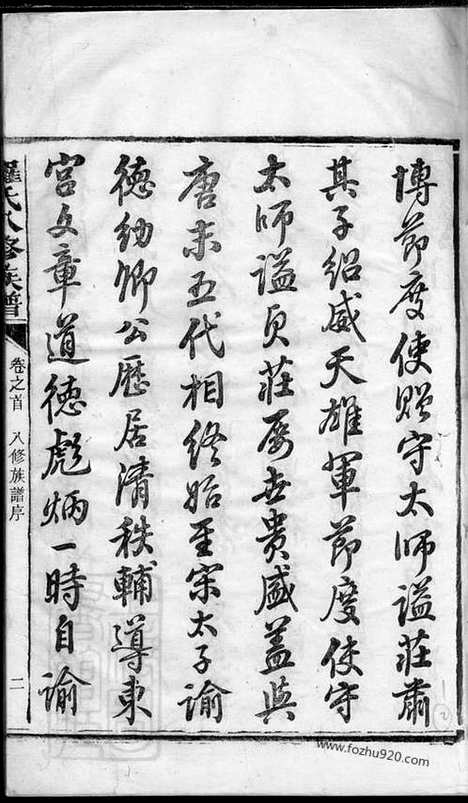 博節度使贈守太师謚莊肅
其子紹威天雄軍節度使守
太师謚貞莊屡世貴盛盖與
唐末五代相终始至宋太子諭
德幼卿公歷居清秩輔導東
宫文章道德彪炳一時自諭
羅氏八修族譜
卷之首 八修族譜序
二
www.fozhu920.com